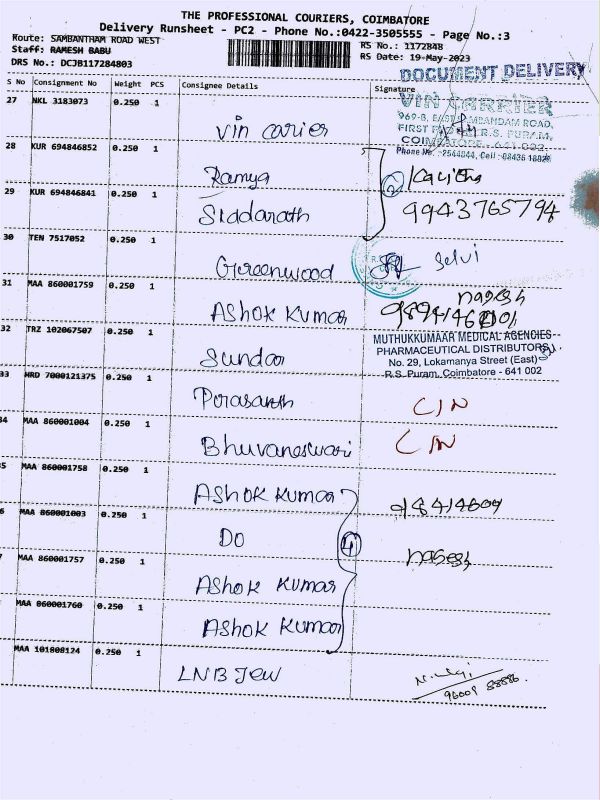 THE PROFESSIONAL COURIERS, COIMBATORE
Delivery Runsheet - PC2 - Phone No.:0422-3505555 - Page No.:3
Route: SAMBANTHAM ROAD WEST
RS No.: 1172848
Staff: RAMESH BABU
RS Date: 19-May-2023
DRS No.: DCJB117284803
DOCUMENT DELIVERY
S No Consignment No Weight PCS Consignee Details Signature
27 NKL 3183073 0.250 1 Vin carier
VIN CARRIER
ROAD,
R.S. PURAM,
COIMBATORE - 641 002
28 KUR 694846852 0.250 1 Ramya
2 Kavitha
29 KUR 694846841 0.250 1 Sladarath 9943765794
30 TEN 7517052 0.250 1 Greenwood Selvi
31 MAA 860001759 0.250 1 Ashok Kumar
nagesh
32 TRZ 102067507 0.250 1 Sundar
MUTHUKKUMAAR MEDICAL AGENCIES
PHARMACEUTICAL DISTRIBUTORS
No. 29, Lokamanya Street (East)
R.S. Puram, Coimbatore - 641 002
33 HRD 7000121375 0.250 1 Perasanth C/N
34 MAA 860001004 0.250 1 Bhuvaneswari C/N
5 MAA 860001758 0.250 1 Ashok Kumar
6 MAA 860001003 0.250 1 Do 4
nagesh
MAA 860001757 0.250 1 Ashok Kumar
MAA 860001760 0.250 1 Ashok Kumar
MAA 101808124 0.250 1 LNB Jew